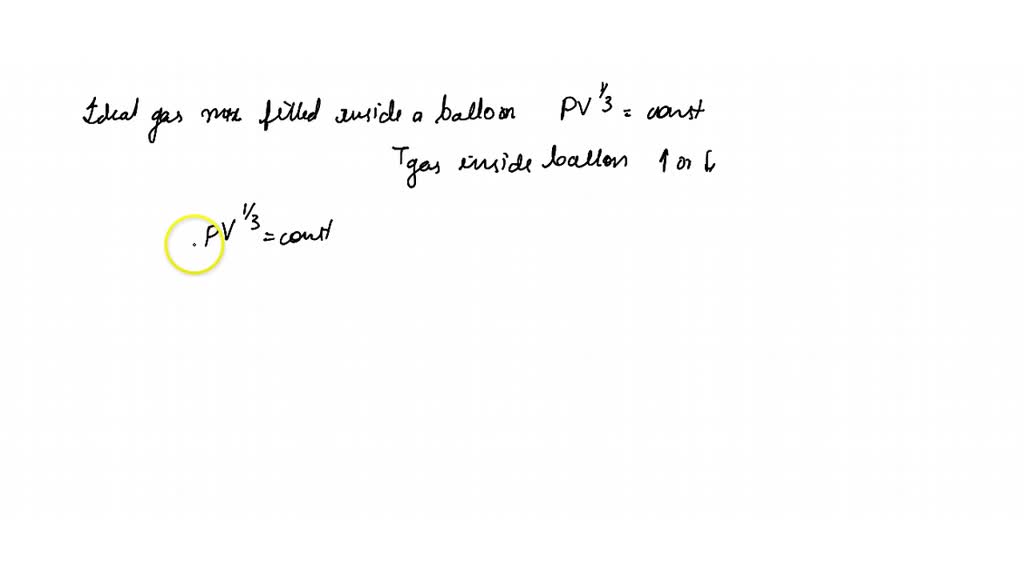 Ideal gas filled inside a balloon PV^1/3 = const
T gas inside ballon ↑ or ↓
PV^1/3 = const